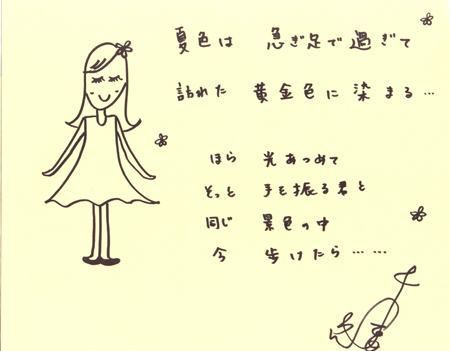 夏色は 急ぎ足で過ぎて
訪れた 黄金色に染まる…
ほら 光あつめて
そっと 手を振る君と
同じ 景色の中
今 歩けたら……